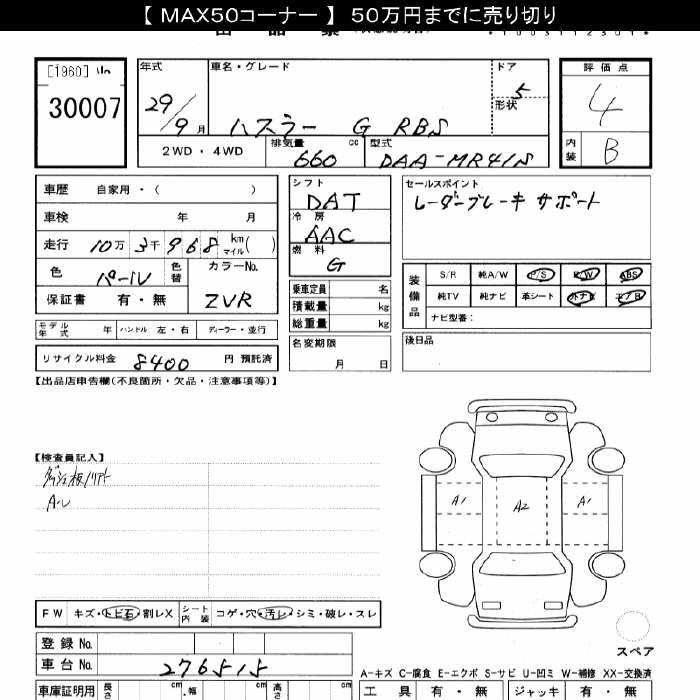 【 MAX50コーナー 】 50万円までに売り切り
[1960]
30007
年式
29/9月
車名・グレード
ハスラー G RBS
ドア
5
形状
評価点
4
内装
B
2WD・4WD
排気量 660 cc
型式
DAA-MR41S
車歴 自家用・( )
車検 年 月
走行 10万 3千 968 km マイル( )
色 パール
色替
カラーNo. ZVR
保証書 有・無
シフト
DAT
冷房
AAC
燃料
G
セールスポイント
レーダーブレーキ サポート
装備品
S/R 純A/W P/S P/W ABS
純TV 純ナビ 革シート 外ナビ エアB
ナビ型番:
乗車定員 名
積載量 kg
総重量 kg
モデル年式 年 ハンドル 左・右 ディーラー・並行
名変期限
月 日
後日品
リサイクル料金 8400 円 預託済
【出品店申告欄(不良箇所・欠品・注意事項等)】
【検査員記入】
A1 A2 A1
FW キズ・トビ石・割レX
シート内装 コゲ・穴・汚レ・シミ・破レ・スレ
スペア
登録 No.
車台 No. 276515
A-キズ C-腐食 E-エクボ S-サビ U-凹ミ W-補修 XX-交換済
車庫証明用 長さ cm 幅 cm 高さ cm
工具 有・無 ジャッキ 有・無